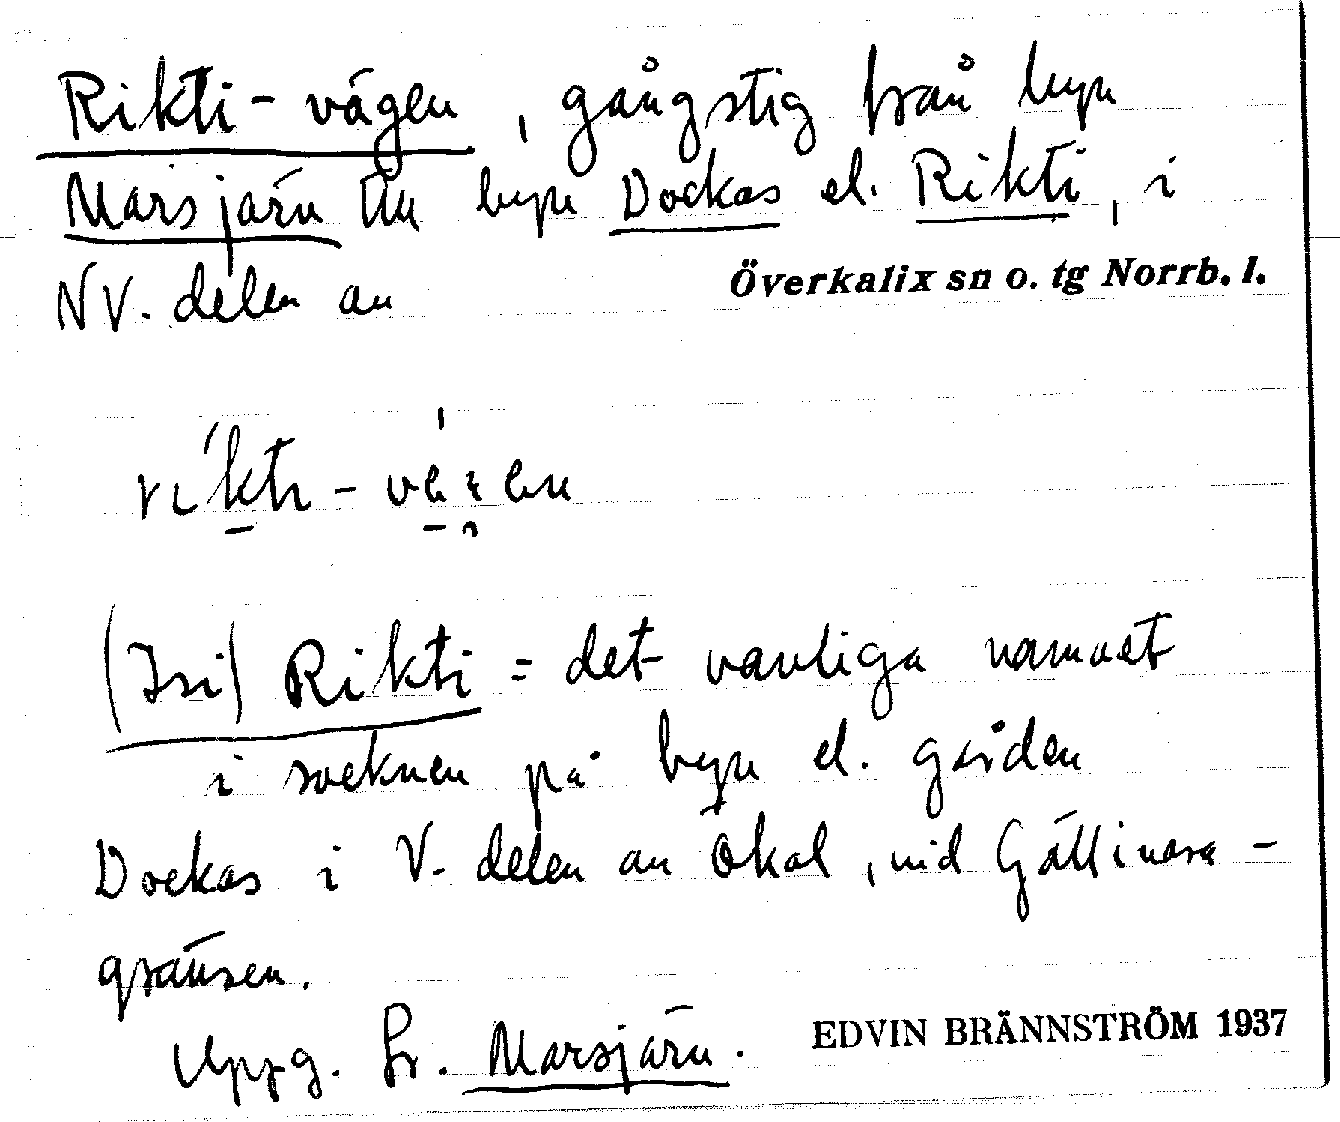 Rikti-vägen, gångstig från byn
Marsjärn till byn Dockas el. Rikti, i
NV. delen av Överkalix sn o. tg Norrb. l.
(Isi) Rikti = det vanliga namnet
i socknen på byn el. gården
Dockas i V. delen av Ökal, vid Gällivara-
gränsen.
Uppg. fr. Marsjärn. EDVIN BRÄNNSTRÖM 1937